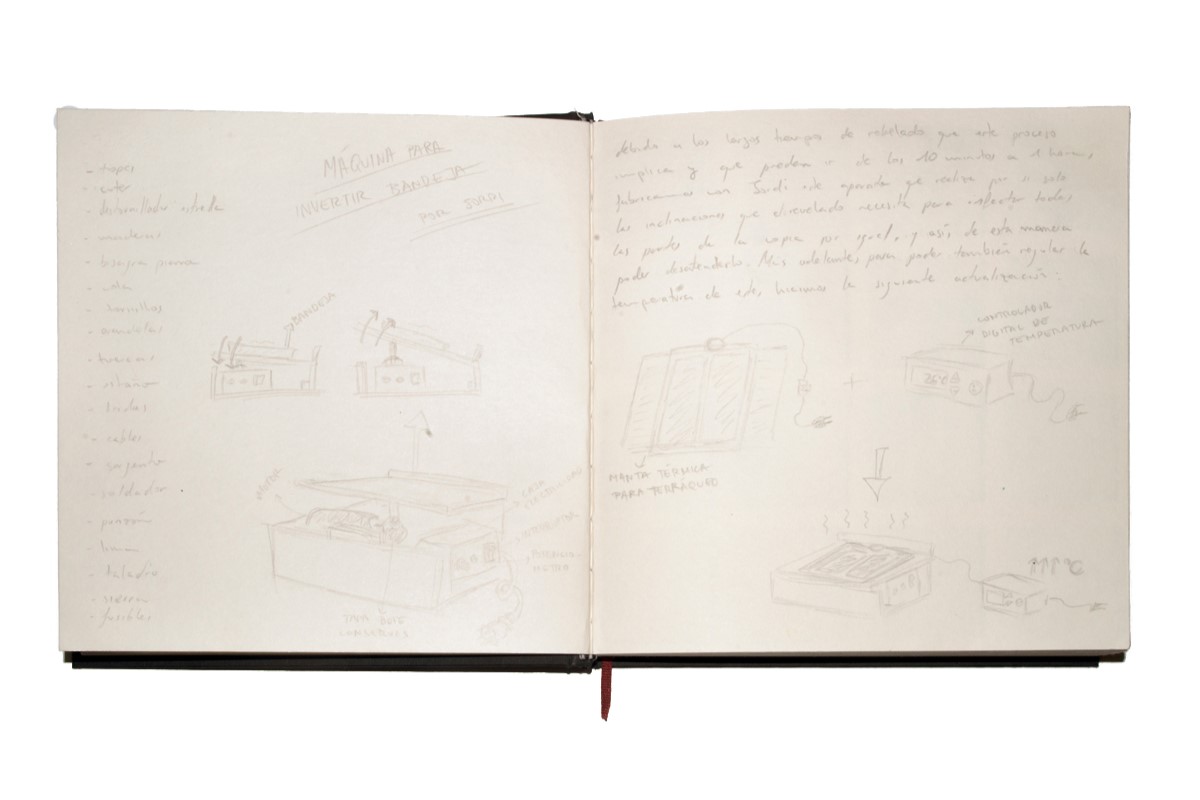 MÁQUINA PARA
INVERTIR BANDEJA
POR JORDI
- cuter
- destornillador estrella
- maderas
- bisagra
- cola
- tornillos
- arandelas
- tuercas
- estaño
- bridas
- cables
- sargento
- soldador
- punzón
- lima
- taladro
- sierra
- fusibles
BANDEJA
MOTOR
CAJA
ELECTRICIDAD
INTERRUPTOR
POTENCIO-
METRO
debido a los largos tiempos de rebelado que este proceso
implica y que pueden ir de los 10 minutos a 1 hora,
fabricamos con Jordi este aparato que realiza por si solo
las inclinaciones que el revelado necesita para afectar todas
las partes de la copia por igual, y así, de esta manera
poder desatenderlo. Mas adelante, para poder también regular la
temperatura de este, hicimos la siguiente actualización:
CONTROLADOR
DIGITAL DE
TEMPERATURA
MANTA TÉRMICA
PARA TERRAQUEO
+
↑↑↑ °C